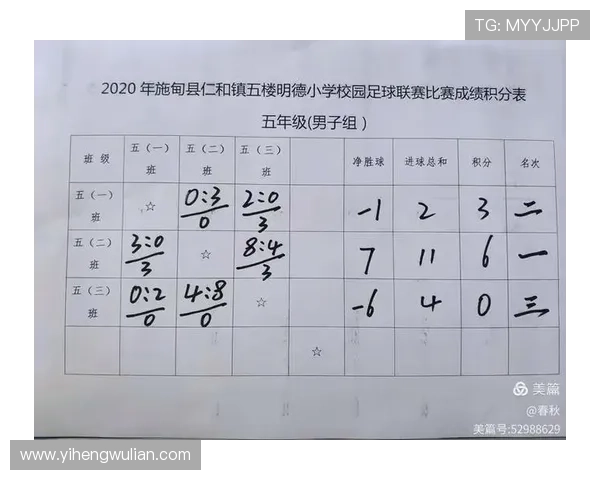 TG: MYYJJPP
2020 年施甸县仁和镇五楼明德小学校园足球联赛比赛成绩积分表
五年级(男子组 )
班 级 五（一）班 五（二）班 五（三）班 净胜球 进球总和 积分 名次
五（一）班 ☆ 0:3/0 2:0/3 -1 2 3 二
五（二）班 3:0/3 ☆ 8:4/3 7 11 6 一
五（三）班 0:2/0 4:8/0 ☆ -6 4 0 三
☆
美篇
@春秋
美篇号:52988629
www.yihengwulian.com